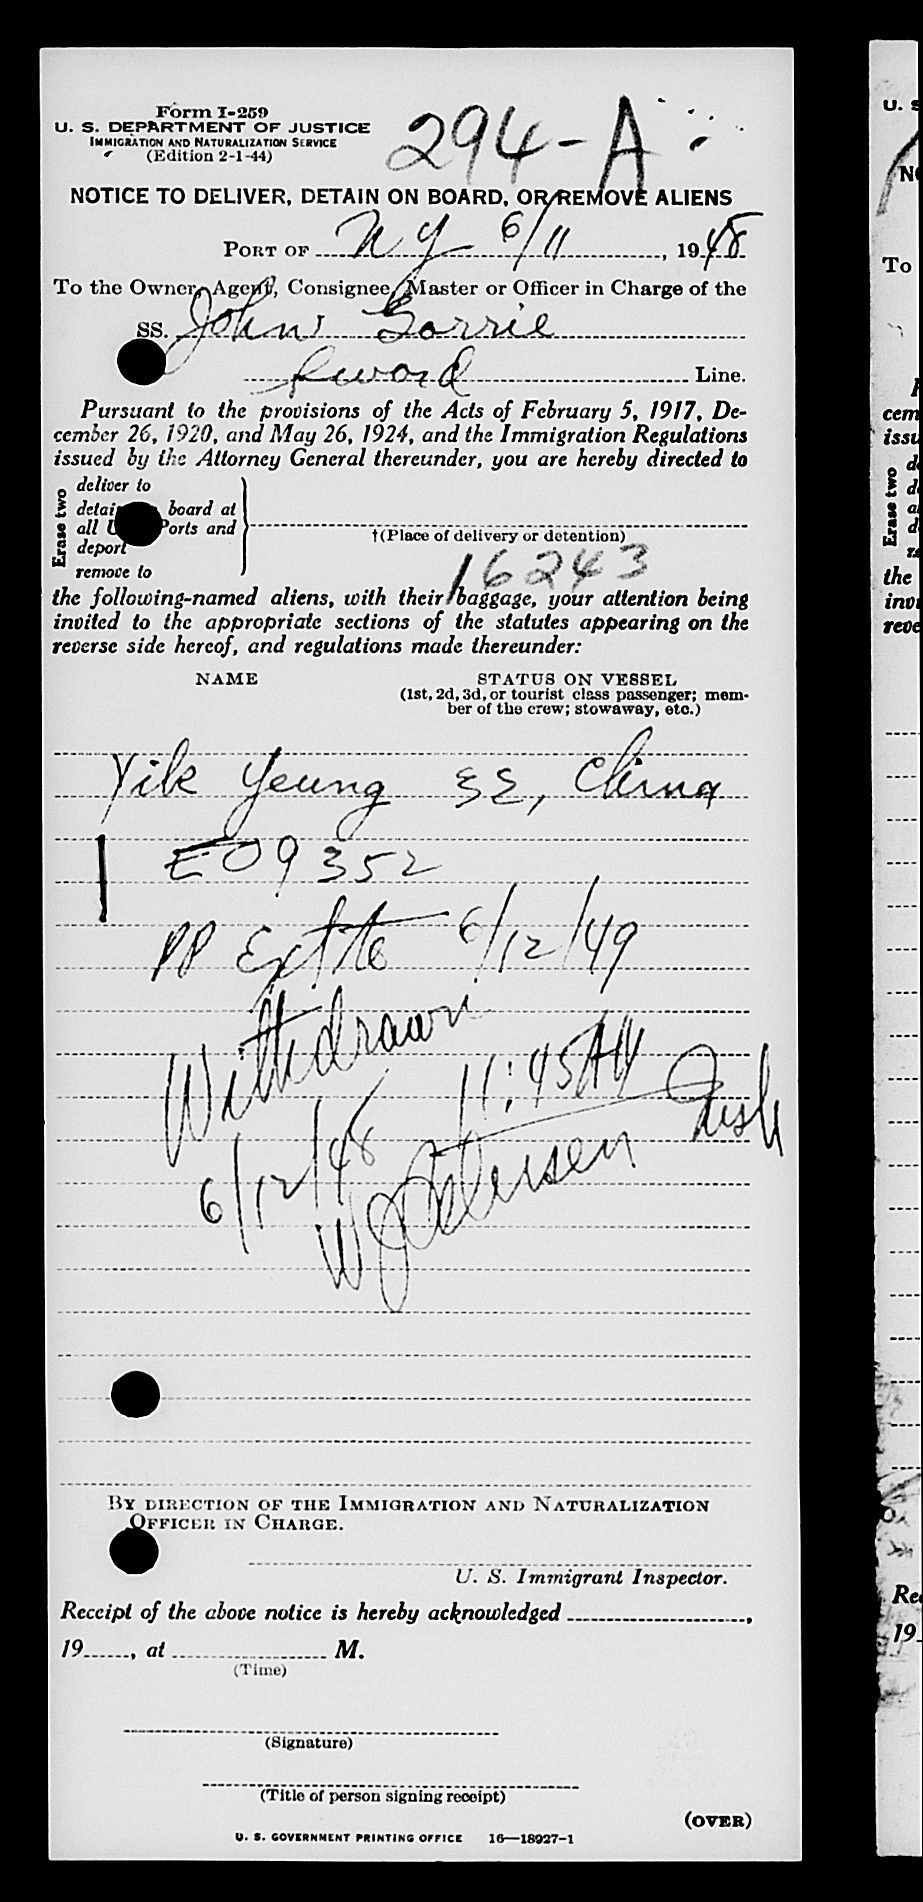 Form I-259
U. S. DEPARTMENT OF JUSTICE
IMMIGRATION AND NATURALIZATION SERVICE
(Edition 2-1-44)
294-A
NOTICE TO DELIVER, DETAIN ON BOARD, OR REMOVE ALIENS
PORT OF NY 6/11, 1948
To the Owner, Agent, Consignee, Master or Officer in Charge of the
SS. John Gorrie
Line.
Pursuant to the provisions of the Acts of February 5, 1917, De-
cember 26, 1920, and May 26, 1924, and the Immigration Regulations
issued by the Attorney General thereunder, you are hereby directed to
Erase two
deliver to
board at
all Ports and
deport
remove to
†(Place of delivery or detention)
16243
the following-named aliens, with their baggage, your attention being
invited to the appropriate sections of the statutes appearing on the
reverse side hereof, and regulations made thereunder:
NAME STATUS ON VESSEL
(1st, 2d, 3d, or tourist class passenger; mem-
ber of the crew; stowaway, etc.)
Yik Yeung 33, China
E09352
PP Ext to 6/12/49
Withdrawn
11:45 AM
6/12/48
W J Petersen
BY DIRECTION OF THE IMMIGRATION AND NATURALIZATION
OFFICER IN CHARGE.
U. S. Immigrant Inspector.
Receipt of the above notice is hereby acknowledged ,
19 , at M.
(Time)
(Signature)
(Title of person signing receipt)
(OVER)
U. S. GOVERNMENT PRINTING OFFICE 16—18927-1